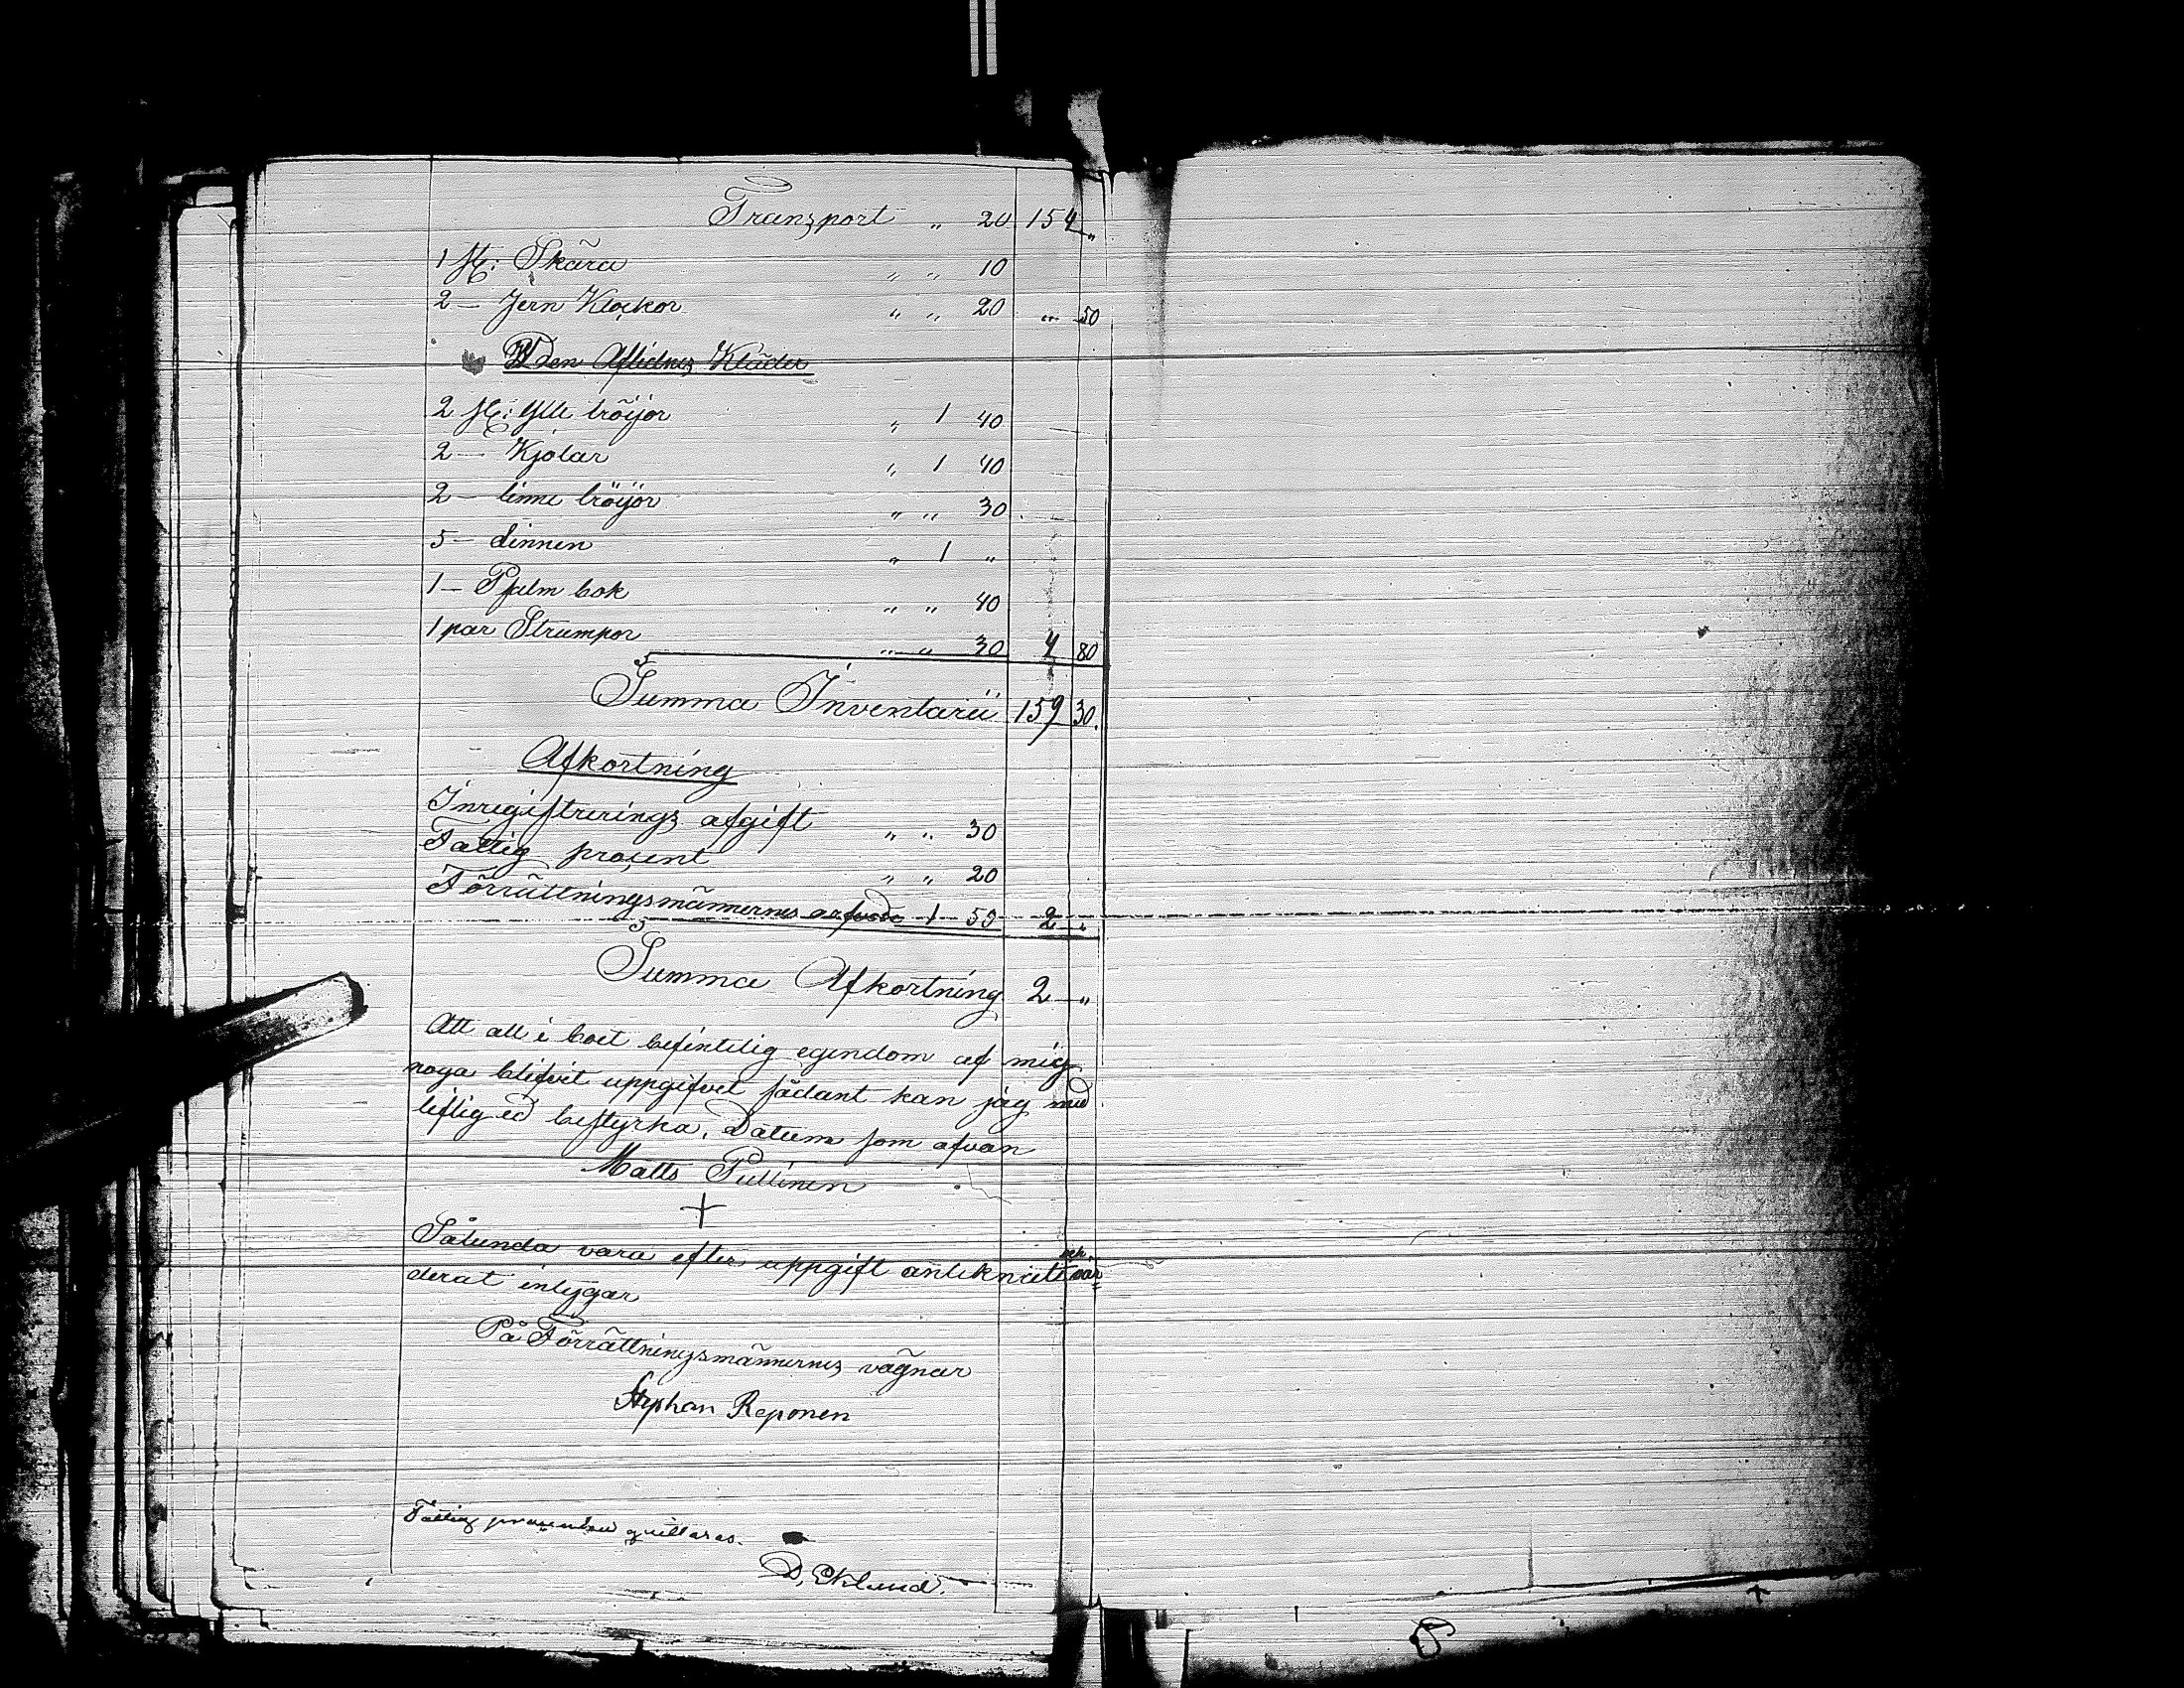 Transport " 20 154 "
1 st: Skära " " 10
2 — Jern Klockor " " 20 " 50
Den Aflidnes Kläder
2 st: Ylle tröijor " 1 40
2 — Kjolar " 1 40
2 — linne tröijor " " 30
5 — Linnen " 1 "
1 — Psalm bok " " 40
1 par Strumpor " " 30 4 80
Summa Inventarii 159 30.
Afkortning
Inregistrerings afgift " " 30
Fattig procent " " 20
Förrättningsmännernes arfvode 1 50 2 "
Summa Afkortning 2 "
Att all i boet befintelig egendom af mig
noga blifvit uppgifvet sådant kan jag med
liflig ed bestyrka. Datum som ofvan
Matts Pullinen
+
Sålunda vara efter uppgift anteknat och vär=
derat intygar
På Förrättningsmännernes vägnar
Stephan Reponen
Fattig procenten quitteras.
D. Eklund.